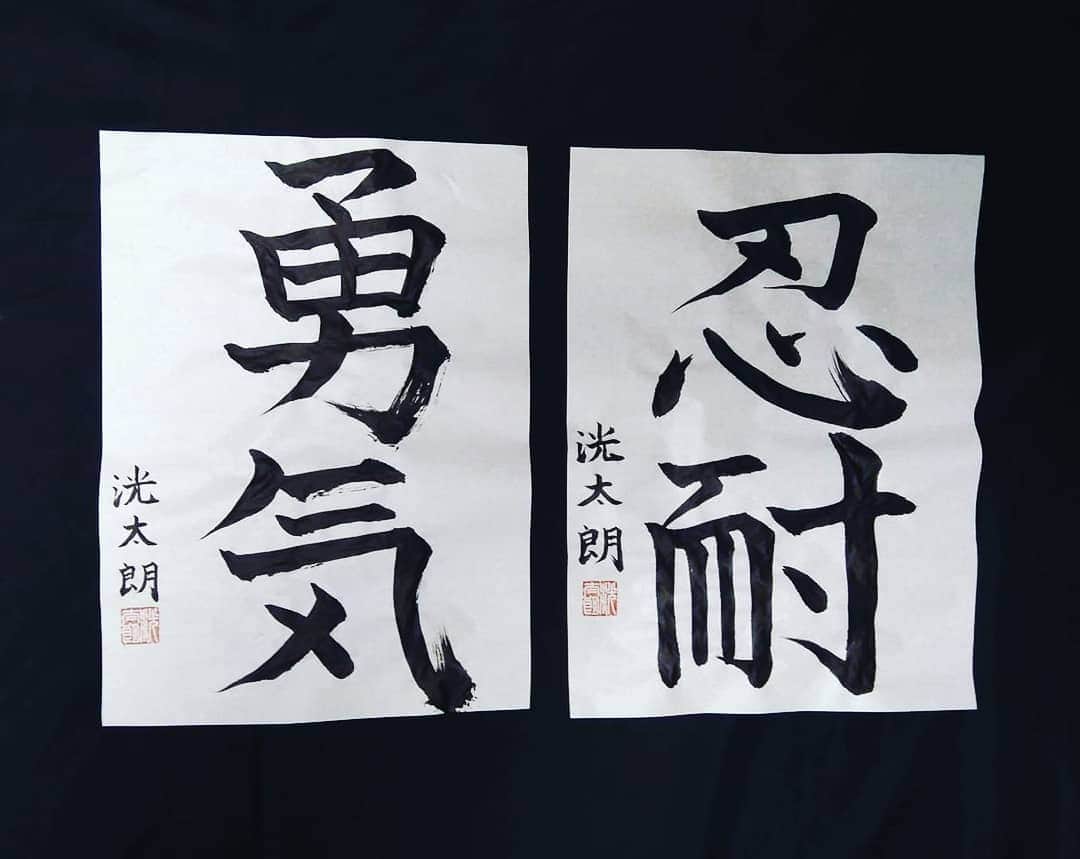 勇気
洸太朗
忍耐
洸太朗